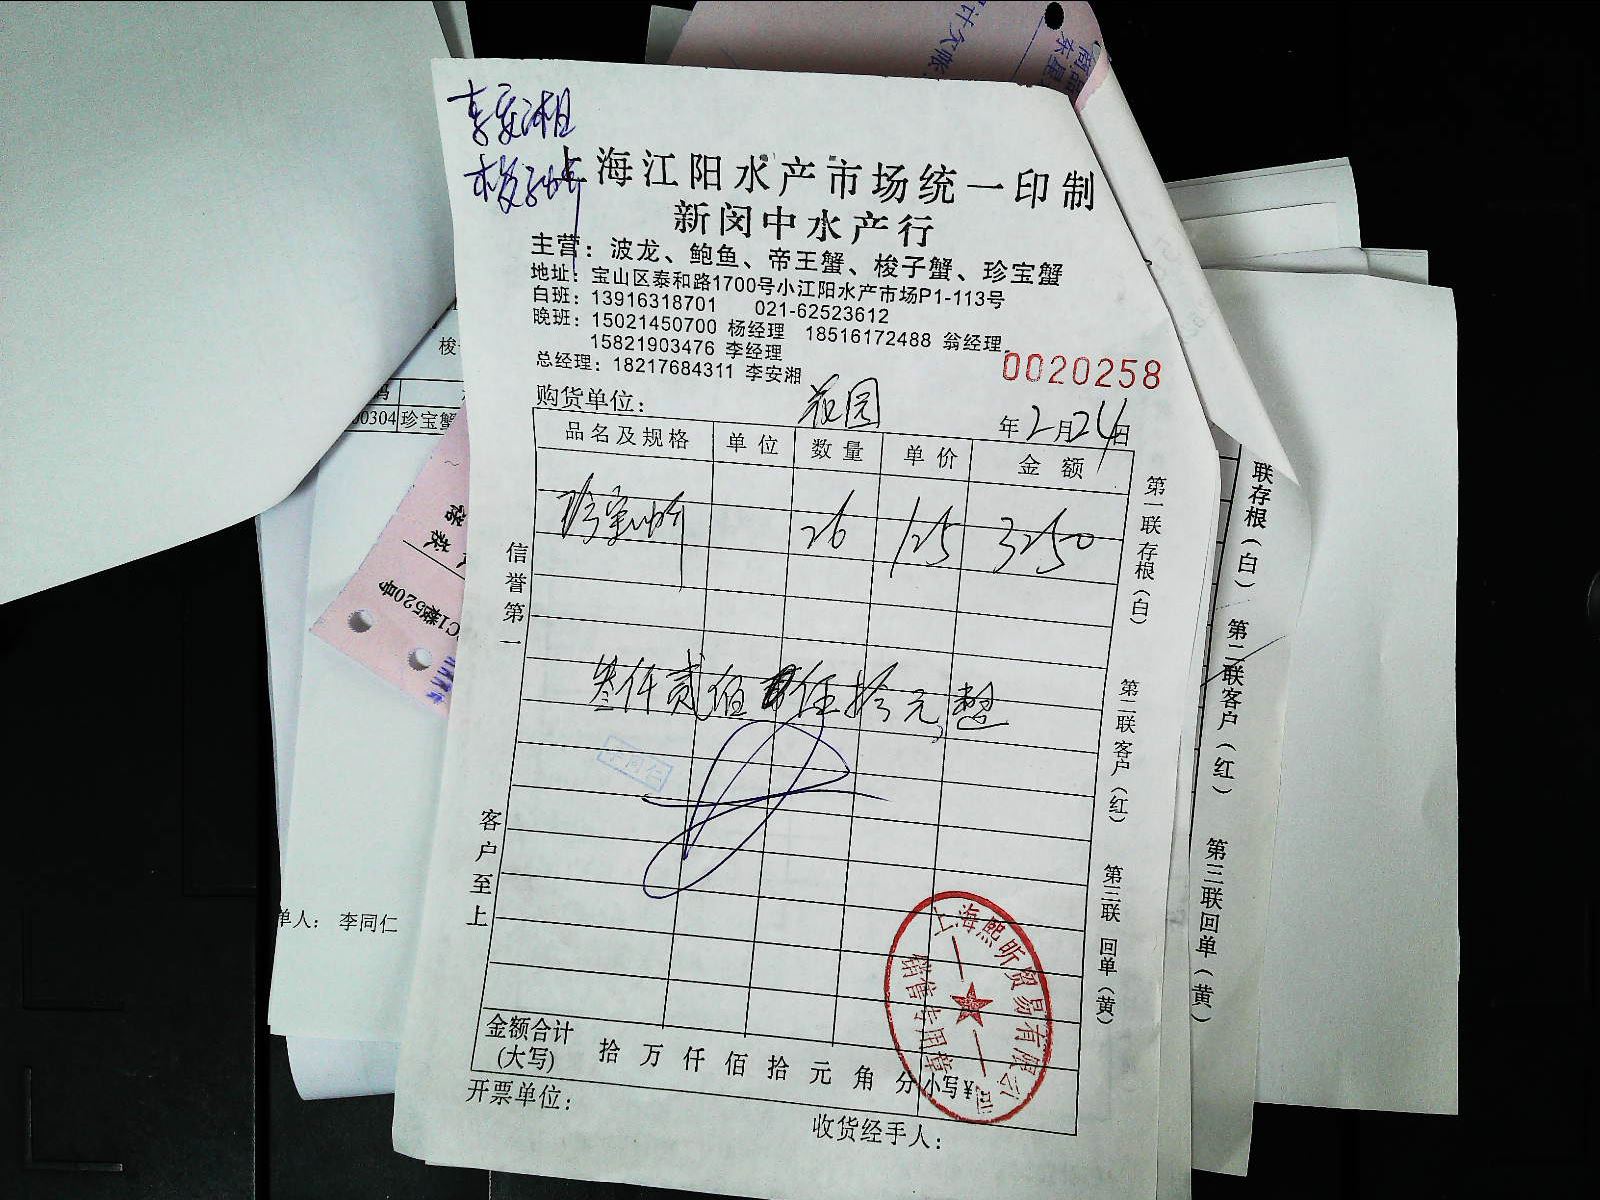 李安湘
梭子蚧
上海江阳水产市场统一印制
新闵中水产行
主营：波龙、鲍鱼、帝王蟹、梭子蟹、珍宝蟹
地址：宝山区泰和路1700号小江阳水产市场P1-113号
白班：13916318701 021-62523612
晚班：15021450700 杨经理 18516172488 翁经理
15821903476 李经理
总经理：18217684311 李安湘
0020258
购货单位： 花园
年2月24日
品名及规格 单位 数量 单价 金额
珍宝蚧 26 125 3250
叁仟贰佰伍拾元整
李同仁
信誉第一
客户至上
第一联 存根（白）
第二联 客户（红）
第三联 回单（黄）
金额合计
(大写) 拾 万 仟 佰 拾 元 角 分 小写¥
开票单位：
收货经手人：
上海熙昕贸易有限公司
销售专用章
联存根（白）
第二联客户（红）
第三联回单（黄）
00304 珍宝蟹
单人： 李同仁
C1栋520号